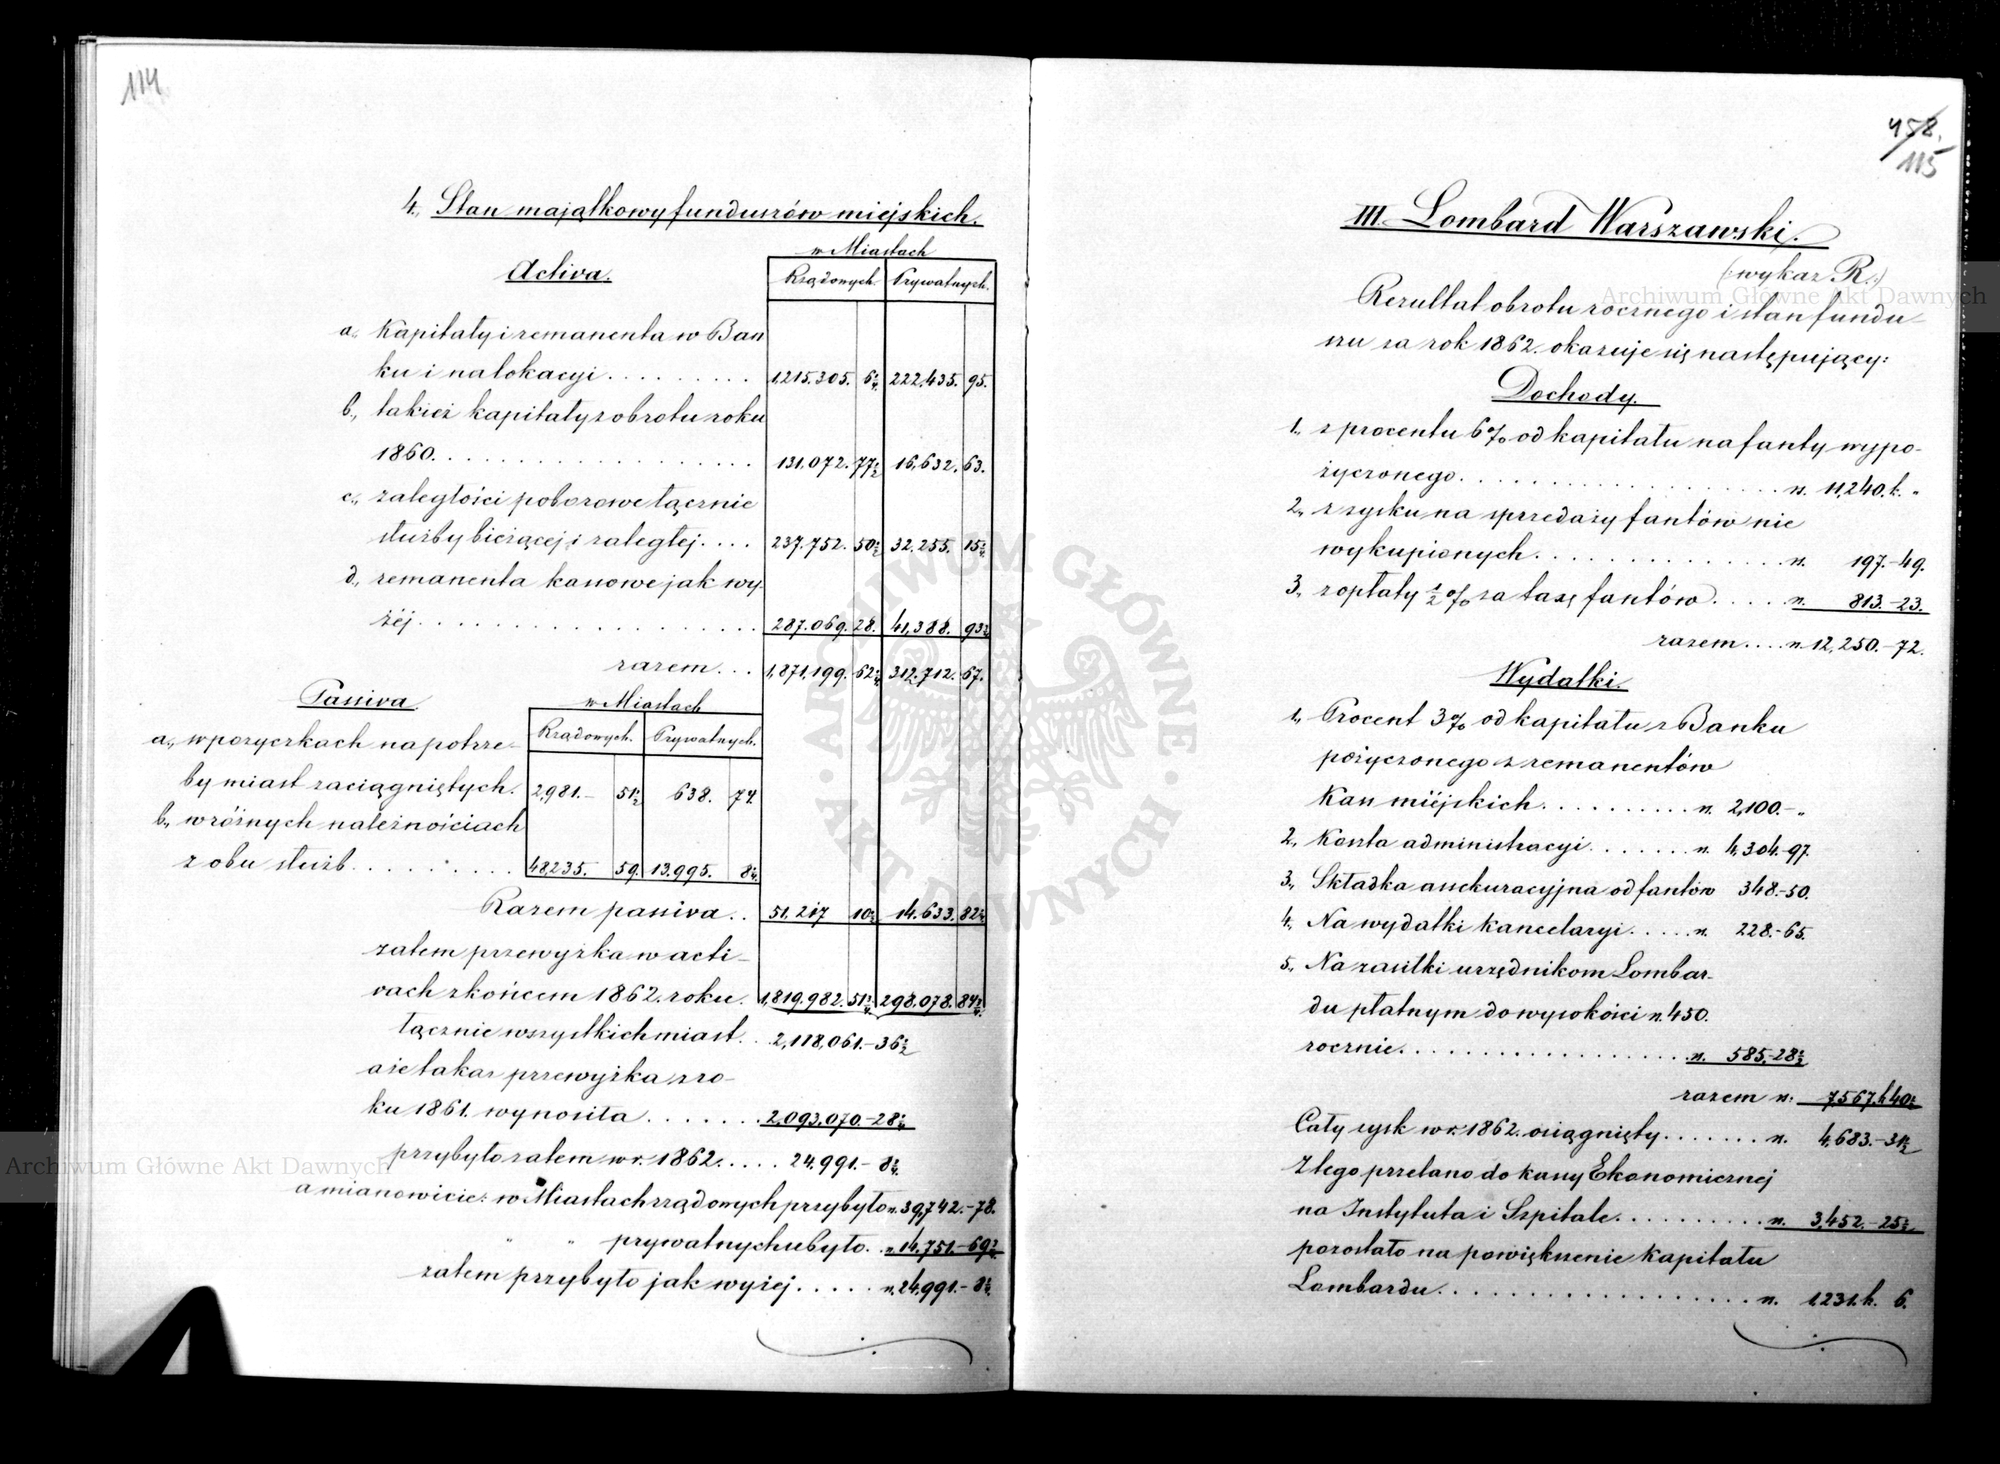 114
4., Stan majątkowy funduszów miejskich.
w Miastach
Activa.
Rządowych Prywatnych.
a., Kapitały i remanenta w Ban
ku i na lokacyi . . . . . . . . . 1,215.305. 222,435. 95.
b., takież kapitały z obrotu roku
1860. . . . . . . . . . . . . . . . 131,072. 77½ 16,632. 63.
c., zaległości poborowe łącznie
służby bieżącej i zaległej. . . . 237.752. 50½ 32.255. 15½
d., remanenta kassowe jak wy
żéj . . . . . . . . . . . . . . . . . 287.069. 28. 41,388. 93½
razem . . . 1,871,199. 312,712. 67.
Passiva w Miastach
Rządowych. Prywatnych.
a., w pożyczkach na potrze-
by miast zaciągniętych. 2,981.- 51½ 638. 74.
b., w różnych należnościach
z obu służb . . . . . . . . . 48,235. 59. 13.995. 8½
Razem passiva . . 51.217 10½ 14.633. 82½
zatem przewyżka w acti-
vach z końcem 1862. roku. 1,819.982. 51¾ 298.078. 84¾
łącznie wszystkich miast . . 2,118,061.-36½
a że takaż przewyżka z ro-
ku 1861. wynosiła . . . . . . . 2,093.070.-28¼
przybyło zatem w r. 1862. . . . . 24.991.- 8¼
a mianowicie: w Miastach rządowych przybyło n. 39,742.-78.
" " prywatnych ubyło . . n. 14,751.-69¾
zatem przybyło jak wyżej . . . . . n. 24,991.- 8¼
458.
115
III. Lombard Warszawski.
(: wykaz R.:)
Rezultat obrotu rocznego i stan fundu-
szu za rok 1862. okazuje się następujący:
Dochody.
1., z procentu 6% od kapitału na fanty wypo-
życzonego . . . . . . . . . . . . . . . . . . n. 11,240. k. "
2., z zysku na sprzedaży fantów nie
wykupionych . . . . . . . . . . . . . . n. 197.-49.
3., z opłaty ½% za taxę fantów . . . . . n. 813.-23.
razem . . . . n. 12,250.-72.
Wydatki.
1., Procent 3% od kapitału z Banku
pożyczonego z remanentów
Kass miéjskich . . . . . . . . . . n. 2,100.- "
2., Koszta administracyi . . . . . . . n. 4,304.-97.
3., Składka assekuracyjna od fantów 348.-50.
4., Na wydatki kancelaryi . . . . . n. 228.-65.
5., Na zasiłki urzędnikom Lombar-
du płatnym do wysokości n. 450.
rocznie . . . . . . . . . . . . . . . . . n. 585.-28½
razem n. 7567. k 40½
Cały zysk w r. 1862. osiągnięty . . . . . . . n. 4,683.-31½
Z tego przelano do kassy Ekonomicznej
na Instytuta i Szpitale . . . . . . . . . . n. 3,452.-25½
pozostało na powiększenie kapitału
Lombardu . . . . . . . . . . . . . . . . . . n. 1231. k. 6.
Archiwum Główne Akt Dawnych
Archiwum Główne Akt Dawnych
ARCHIWUM GŁÓWNE · AKT DAWNYCH ·